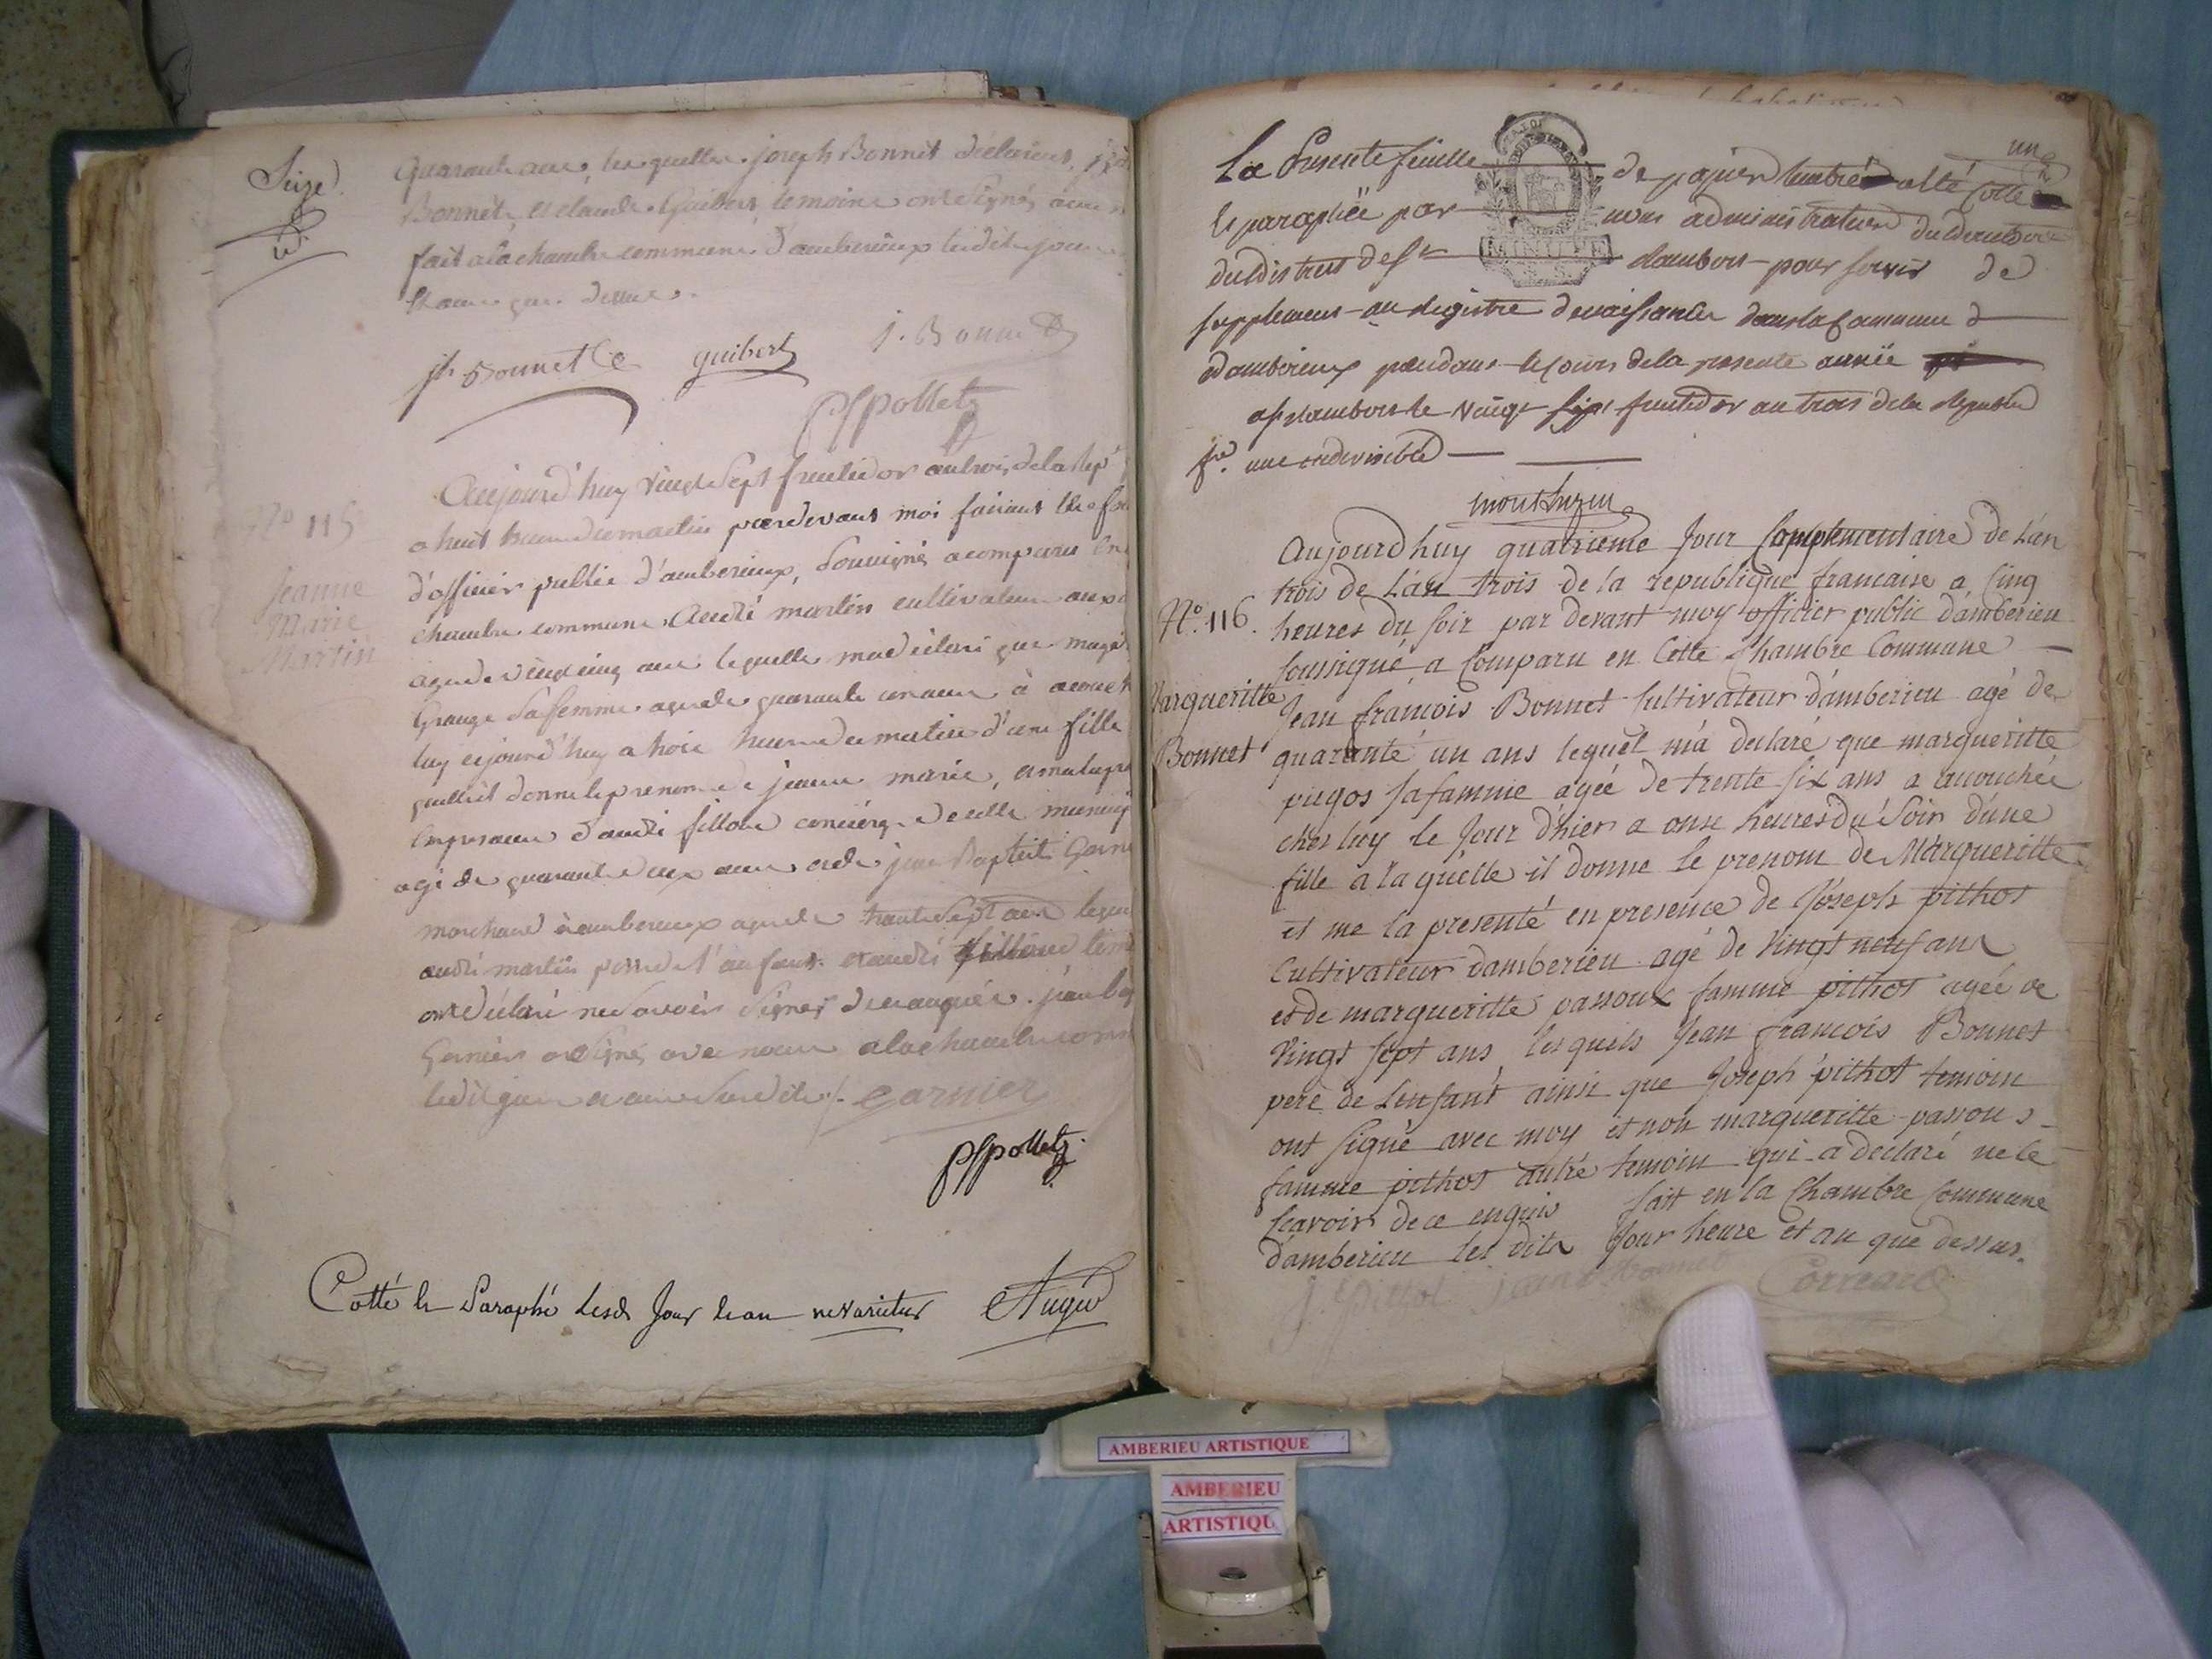 Seize
quarante ans, les quelles joseph Bonnet déclarant,
Bonnet, et claude Guibert temoins ont signés avec
fait a la chambre commune d'amberieux lesdits jour
et an que dessus.
jh Bonnet
guibert
j. Bonnet
Pollet
N° 115
Jeanne
Marie
Martin
Aujourd'huy vingt sept fructidor an trois de la rep
a huit heures du matin pardevant moi faisant les fon
d'officier public d'amberieux, soussigné a comparu en
chambre commune, André martin cultivateur
agé de cinq ans lequelle ma déclaré que
Grange sa femme agée de quarante un ans à acouch
luy cejourd'huy a trois heures du matin d'une fille
quelle il donne le prenom de jeanne marie, et me la pre
en presence d'andré fillion concierge de cette municip
agé de quarante deux ans et de jean Baptiste Garni
marchand à amberieux agé de trente sept ans lequ
andré martin pere de l'enfant et andré fillion tem
ont déclaré ne savoir signer de ce enquis. jean bap
Garnier a signé avec nous a la chambre com
ledit jour et an susdits /. garnier
Pollet
Cotté et Paraphé lesd Jour et an nevarietur Augerd
une
La Presente feuille de papier timbré a été Cotte
et paraphée par nous administrateur du directoire
du district de St Rambert pour servir de
supplement au Registre de naissances dans la Commune d
d'amberieux pendant le cours de la presente année
a St Rambert le vingt sept fructidor an trois de la republ
fse une indivisible
MINUTE
Aujourdhuy quatrieme Jour Complementaire de L'an
trois de L'an trois de la republique francaise a Cinq
N°. 116. heures du soir par devant moy officier public d'amberieu
soussigné a Comparu en Cette Chambre Commune
Margueritte
Bonnet
Jean francois Bonnet Cultivateur d'amberieu agé de
quarante un ans lequel m'a declaré que margueritte
pugos sa famme agée de trente six ans a acouchée
ches luy le Jour d'hier a onse heures du Soir d'une
fille a la quelle il donne le prenom de Margueritte
et me la presenté en presence de Joseph pithos
Cultivateur d'amberieu agé de Vingt neuf ans
et de margueritte passoux famme pithos agée de
Vingt sept ans, les quels Jean francois Bonnet
pere de L'enfant ainsi que Joseph pithot temoin
ont signé avec moy et non margueritte passous
famme pithos autre temoin qui a declaré ne le
scavoir de ce enquis fait en la Chambre Commune
d'amberieu les dits Jour heure et an que dessus.
AMBERIEU ARTISTIQUE
AMBERIEU
ARTISTIQU